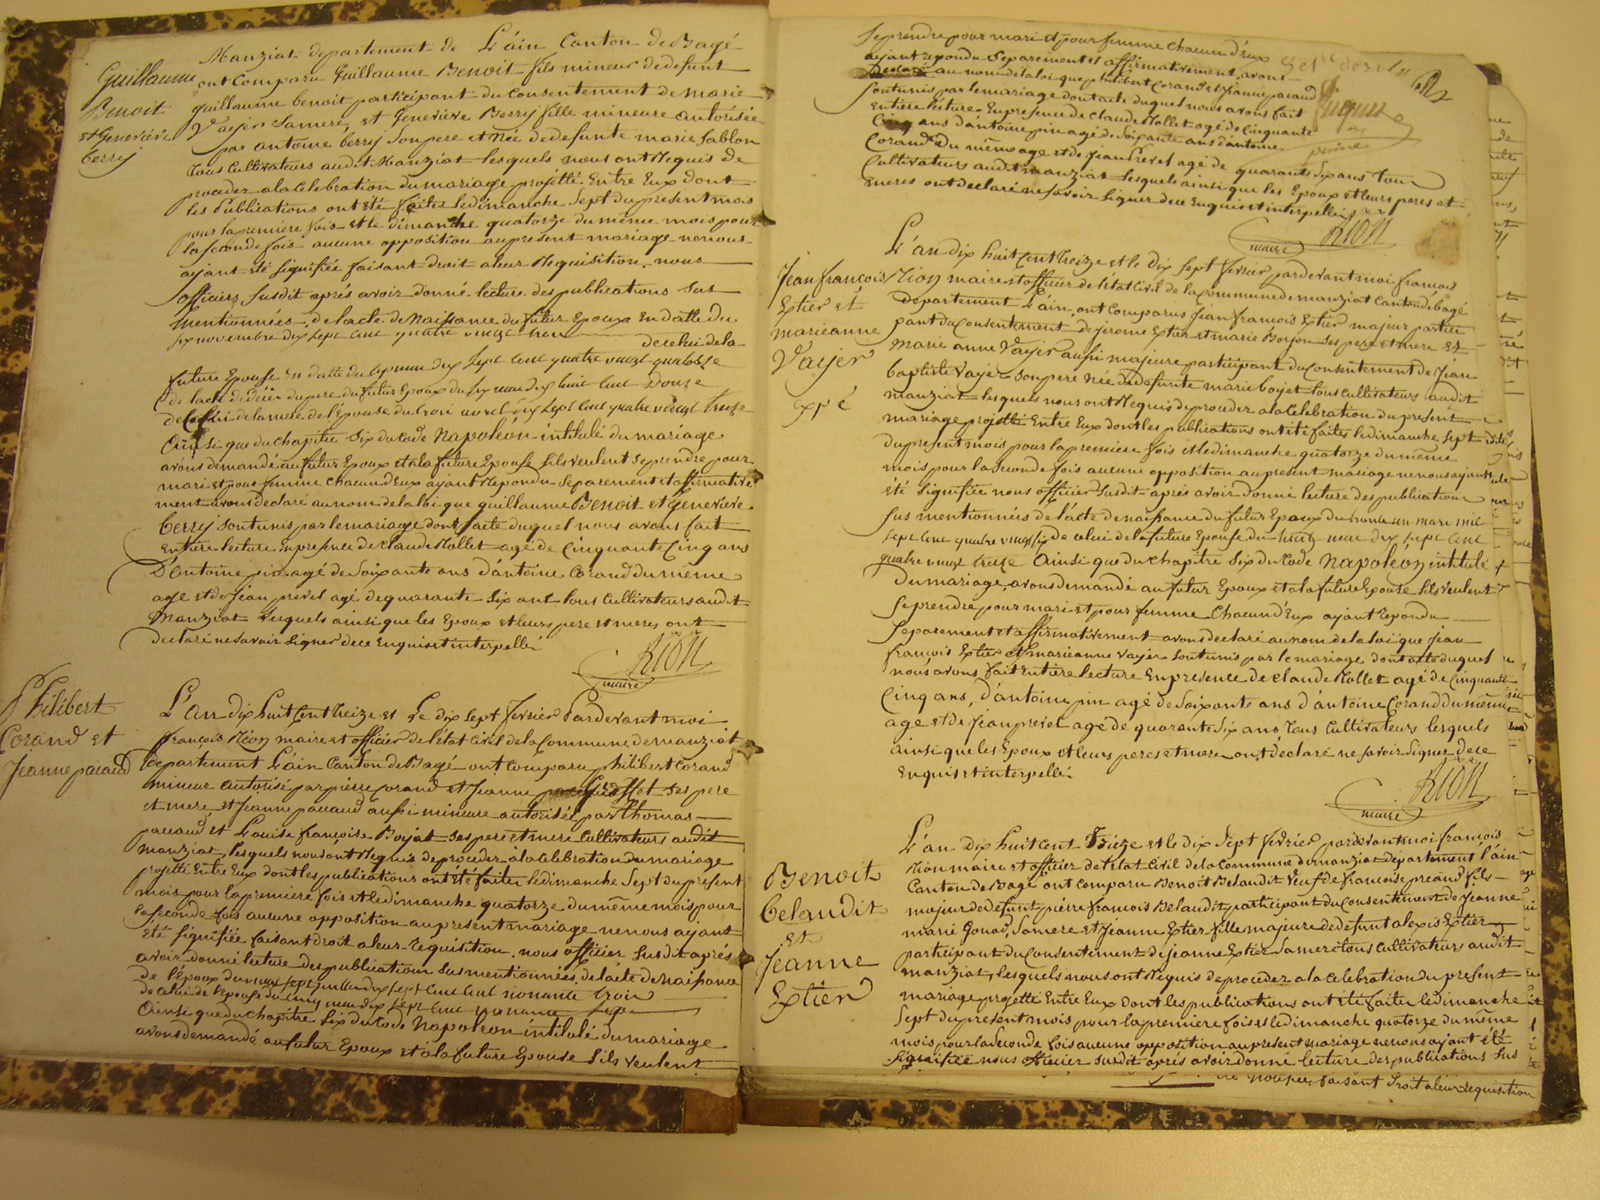 Manziat departement de L'ain Canton de Bagé
Guillaume
Benoit
et Genevieve
berry
ont Comparu Guillaume Benoit fils mineur de defunt
guillaume benoit participant du Consentement de marie
Vayer Samere, et Genevieve Berry fille mineure autorisée
par antoine berry Son pere et Née de defunte marie Sablon
tous Cultivateurs audit Manziat lesquels nous ont Requis de
proceder a la Celebration du mariage projetté Entre Eux dont
les Publications ont été faites le dimanche Sept du present mois
pour la premiere fois et le dimanche quatorze du même mois pour
la seconde fois aucune opposition au present mariage ne nous
ayant été Signifiée faisant droit a leur Requisition, nous
officier Susdit aprés avoir donné lecture des publications Sus
mentionnées, de l'acte de Naissance du futur Epoux En datte du
six novembre dix sept cent quatre vingt de celui de la
future Epouse En datte du dix Sept Cent quatre vingt quatorze
de l'acte de décés du pere du futur Epoux du six mai dix huit cent Douze
de Celui de la mere de l'épouse du trois avril dix Sept Cent quatre vingt treize
Ainsi que du chapitre Six du Code Napoléon intitulé du mariage
avons demandé au futur Epoux et a la future Epouse S'ils veulent Se prendre pour
mari et pour femme Chacun d'Eux ayant Repondu Separement et affirmative
ment avons declaré au nom de la loi que guillaume Benoit et Genevieve
berry Sont unis par le mariage dont acte duquel nous avons fait
Entiere lecture En presence de Claude Mollet agé de Cinquante Cinq ans
D'Antoine pin agé de Soixante ans d'antoine Corand du même
age et de Jean prevel agé de quarante Six ans tous Cultivateurs audit
Manziat lesquels ainsi que les Epoux et leurs pere et mere, ont
declaré ne Savoir Signer de ce Enquis et interpellé
Rion
maire
Philibert
Corand et
Jeanne pacaud
L'An dix huit Cent treize et Le dix Sept fevrier Pardevant moi
françois Rion maire et officier de l'état Civil de la Commune de manziat
departement L'ain Canton de Bagé ont Comparu philibert Corand
mineur autorisé par pierre Corand et Jeanne Ses pere
et mere et Jeanne pacaud aussi mineure autorisée par Thomas
pacaud et Louise françoise Boyat Ses pere et mere Cultivateurs audit
manziat, lesquels nous ont Requis de proceder a la Celebration du mariage
projetté Entre Eux dont les publications ont été faites le dimanche Sept du présent
mois pour la premiere fois et le dimanche quatorze du même mois pour
la seconde fois aucune opposition au present mariage ne nous ayant
été Signifiée faisant droit a leur requisition, nous officier Susdit aprés
avoir donné lecture des publications Susmentionnées de l'acte de Naissance
de l'époux du sept Cent nonante trois
de Celui de l'épouse du cinq mai dix Sept Cent nonante Sept
Ainsi que du Chapitre Six du Code Napoleon intitulé du mariage
avons demandé au futur Epoux et a la future Epouse S'ils veulent
Se prendre pour mari et pour femme Chacun d'Eux
ayant repondu Separement et affirmativement, avons
Declaré au nom de la loi que philibert Corand et Jeanne pacaud
Sont unis par le mariage dont acte duquel nous avons fait
Entiere lecture En presence de Claude Mollet agé de Cinquante
Cinq ans d'antoine pin agé de Soixante ans d'antoine
Corand du même age et de Jean Prevel agé de quarante Six ans tous
Cultivateurs audit manziat lesquels ainsi que les Epoux et leurs peres et
meres ont declaré ne Savoir Signer de ce Enquis et interpellés
Rion
maire
Jean françois
Extier et
marieanne
Vayer
L'an dix huit Cent treize et le dix Sept fevrier pardevant moi françois
Rion maire et officier de l'état Civil de la Commune de manziat Canton de bagé
Departement L'ain, ont Comparus Jean françois Extier majeur partici
pant du Consentement de Jerome Extier et marie Borjon Ses pere et mere et
Marie anne Vayer aussi majeure participant du Consentement de Jean
baptiste Vayer Son pere Née de defunte marie boyat tous Cultivateurs audit
manziat lesquels nous ont Requis de proceder a la Celebration du present
mariage projetté Entre Eux dont les publications ont été faites le dimanche Sept
du present mois pour la premiere fois et le dimanche quatorze du même
mois pour la Seconde fois aucune opposition au present mariage ne nous ayant
été Signifiée nous officier Susdit aprés avoir Donné lecture des publications
Sus mentionnées de l'acte de naissance du futur Epoux du trente un mars mil
Sept Cent quatre vingt six de celui de la future Epouse du huit mai dix Sept Cent
quatre vingt treize Ainsi que du chapitre Six du Code Napoléon intitulé
du mariage, avons demandé au futur Epoux et a la future Epouse S'ils veulent
Se prendre pour mari et pour femme Chacun d'Eux ayant Repondu
Separement et affirmativement avons declaré au nom de la loi que Jean
françois Extier et marieanne vayer Sont unis par le mariage dont acte duquel
nous avons fait Entiere lecture En presence de Claude Mollet agé de Cinquante
Cinq ans, d'antoine pin agé de Soixante ans d'antoine Corand du même
age et de Jean prevel agé de quarante Six ans, tous Cultivateurs lesquels
ainsi que les Epoux et leurs peres et mere ont declaré ne Savoir Signer de ce
Enquis et interpellé
Rion
maire
Benoit
belaudit
et
Jeanne
Extier
L'an dix huit Cent treize et le dix Sept fevrier pardevant moi françois
Rion maire et officier de l'état Civil de la Commune de manziat departement l'ain
Canton de Bagé ont Comparu Benoit Belaudit veuf de françoise preand fils
majeur de defunt pierre françois Belaudit participant du Consentement de Jeanne
marie Gonod, Samere et Jeanne Extier fille majeure de defunt alexis Extier
participant du Consentement de Jeanne Extier Samere tous Cultivateurs audit
manziat, lesquels nous ont Requis de proceder a la Celebration du present
mariage projetté Entre Eux dont les publications ont été faites le dimanche
Sept du present mois pour la premiere fois et le dimanche quatorze du même
mois pour la Seconde fois aucune opposition au present mariage ne nous ayant été
Signifiée nous officier Susdit aprés avoir donné lecture des publications Sus
faisant Droit a leur Requisition